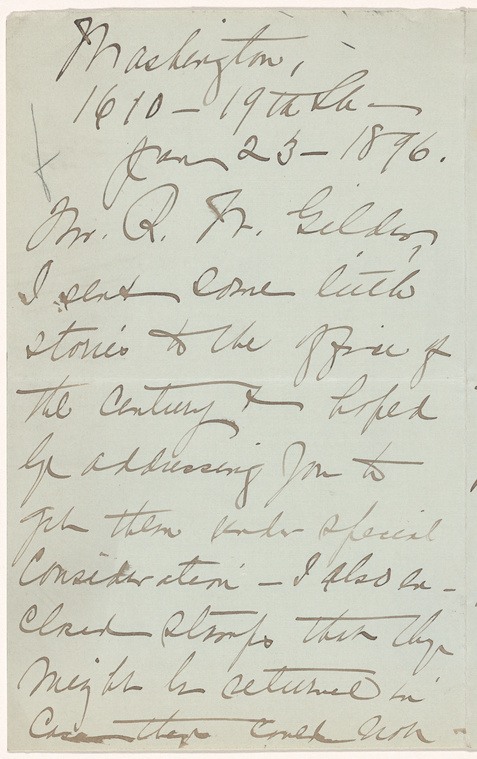 Washington,
1610 - 19th St -
Jan 23 - 1896.
Mr. R. W. Gilder,
I sent some little
stories to the office of
the Century & hoped
by addressing you to
get them under special
consideration - I also en-
closed stamps that they
might be returned in
case they could not